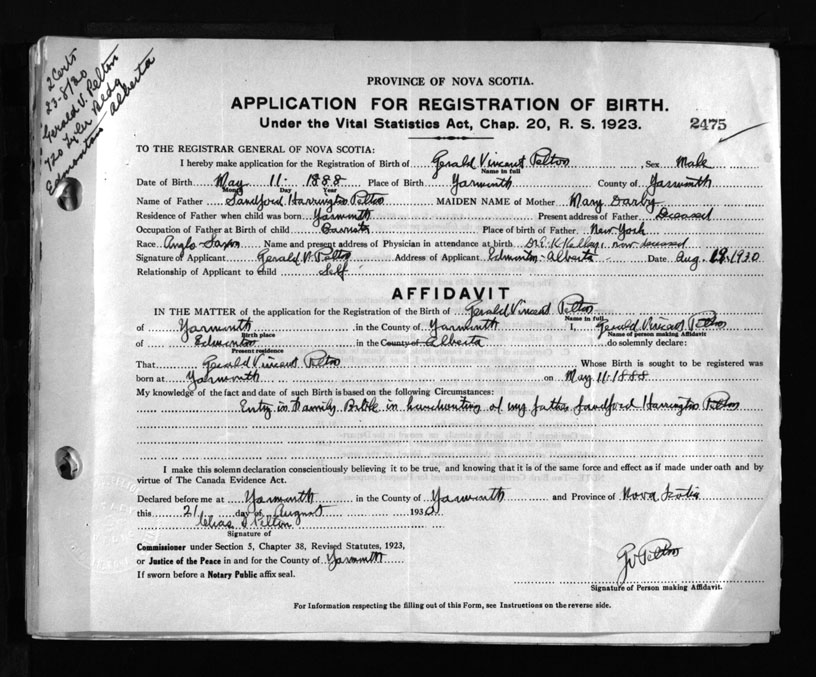 2 Certs
23-8/30
Gerald V. Pelton
720 Tyler Bldg
Edmonton Alberta
PROVINCE OF NOVA SCOTIA.
APPLICATION FOR REGISTRATION OF BIRTH.
Under the Vital Statistics Act, Chap. 20, R. S. 1923. 2475
TO THE REGISTRAR GENERAL OF NOVA SCOTIA:
I hereby make application for the Registration of Birth of Gerald Vincent Pelton, Sex Male
Name in full
Date of Birth May 11- 1888 Place of Birth Yarmouth County of Yarmouth
Month Day Year
Name of Father Sandford Harrington Pelton MAIDEN NAME of Mother Mary Darby
Residence of Father when child was born Yarmouth Present address of Father Deceased
Occupation of Father at Birth of child Barrister Place of birth of Father New York
Race Anglo Saxon Name and present address of Physician in attendance at birth Dr. K Kelley, now deceased
Signature of Applicant Gerald V. Pelton Address of Applicant Edmonton - Alberta Date Aug. 19 1930
Relationship of Applicant to Child Self
AFFIDAVIT
IN THE MATTER of the application for the Registration of the Birth of Gerald Vincent Pelton
Name in full
of Yarmouth in the County of Yarmouth I, Gerald Vincent Pelton
Birth place Name of person making Affidavit
of Edmonton in the County of Alberta do solemnly declare:
Present residence
That Gerald Vincent Pelton Whose Birth is sought to be registered was
born at Yarmouth on May 11-1888
My knowledge of the fact and date of such Birth is based on the following Circumstances:
Entry in Family Bible in handwriting of my father Sandford Harrington Pelton
I make this solemn declaration conscientiously believing it to be true, and knowing that it is of the same force and effect as if made under oath and by
virtue of The Canada Evidence Act.
Declared before me at Yarmouth in the County of Yarmouth and Province of Nova Scotia
this 21 day of August 1930
Chas S Pelton
Signature of
Commissioner under Section 5, Chapter 38, Revised Statutes, 1923,
or Justice of the Peace in and for the County of Yarmouth
If sworn before a Notary Public affix seal.
GV Pelton
Signature of Person making Affidavit.
For Information respecting the filling out of this Form, see Instructions on the reverse side.